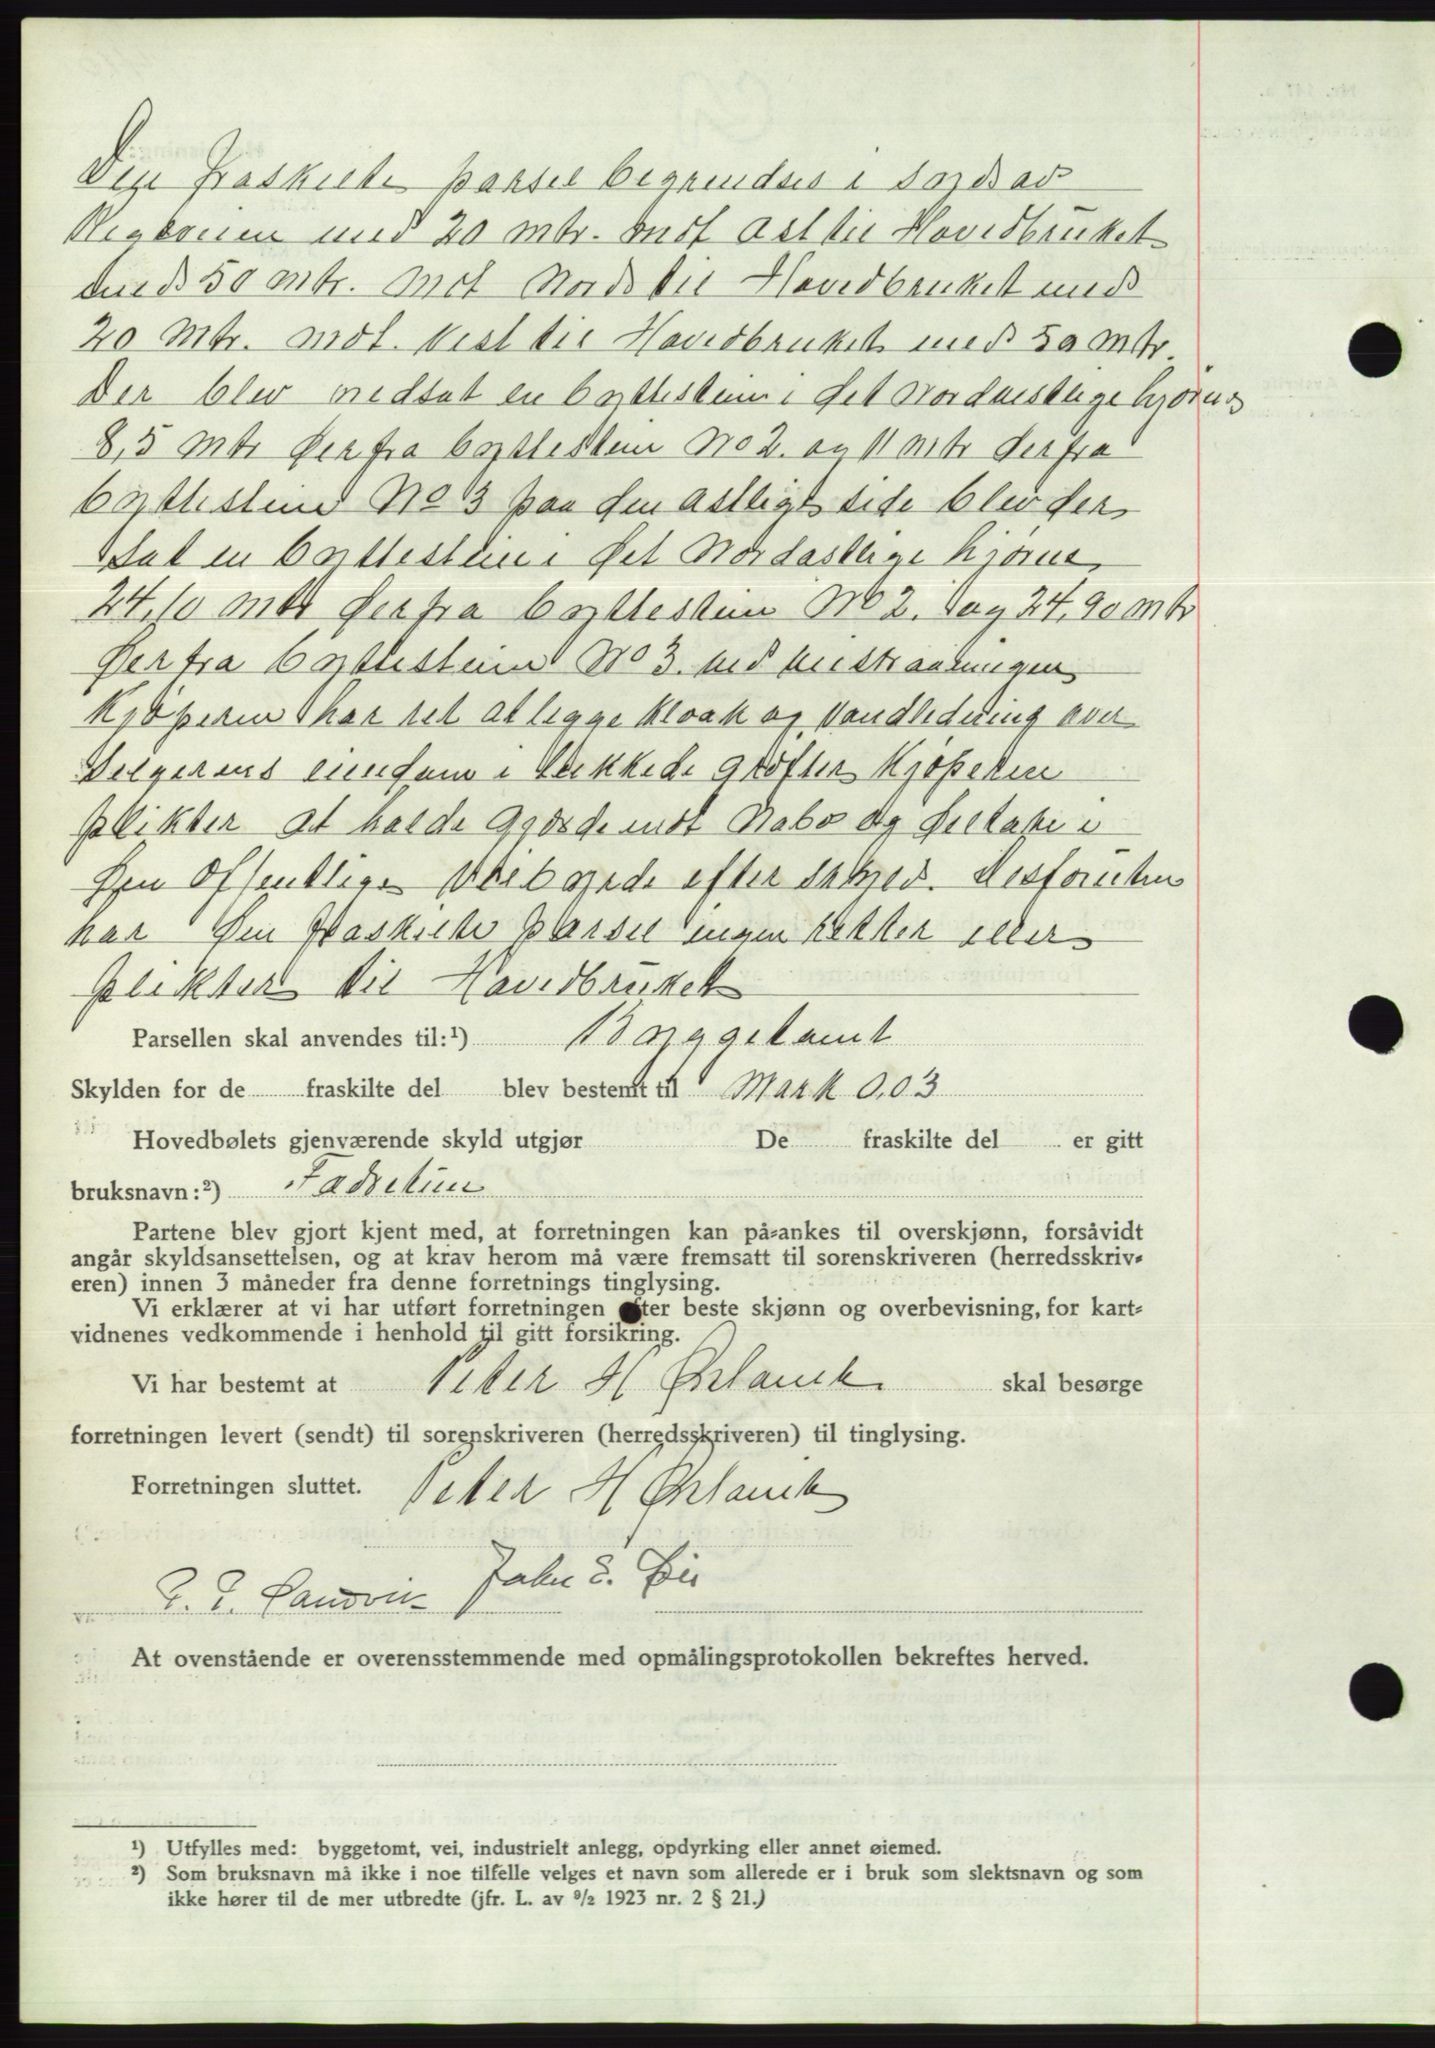 Den fraskilte parsel begrendses i syd av
Rigsveien med 20 mtr. mot Ast til Hovedbruket
med 50 mtr. mot Nord til Hovedbruket med
20 Mtr. mot. Vest til Hovedbruket med 50 Mtr.
Der blev nedsat en byttestein i det Nordvestlige hjørne
8,5 Mtr derfra byttestein No 2. og 11 mtr derfra
byttestein No 3 paa den astlige side blev der
sat en byttestein i det Nordastlige hjørne
24,10 mtr derfra byttestein No 2. og 24,90 mtr
derfra byttestein No 3. ved
Kjøperen har ret at legge kloak og vandledning over
Selgerens eiendom i lukkede grøfter Kjøperen
plikter at holde gjærde mot Nabo og deltake i
den Offentlige Veibyrde efter skyld. Desforuten
har den fraskilte parsel ingen retter eller
plikter til Hovedbruket
Parsellen skal anvendes til:¹) Byggetomt
Skylden for de fraskilte del blev bestemt til Mark 0,03
Hovedbølets gjenværende skyld utgjør De fraskilte del er gitt
bruksnavn:²)
Partene blev gjort kjent med, at forretningen kan på-ankes til overskjønn, forsåvidt
angår skyldsansettelsen, og at krav herom må være fremsatt til sorenskriveren (herredsskriv-
eren) innen 3 måneder fra denne forretnings tinglysing.
Vi erklærer at vi har utført forretningen efter beste skjønn og overbevisning, for kart-
vidnenes vedkommende i henhold til gitt forsikring.
Vi har bestemt at Peter H Ørlanek skal besørge
forretningen levert (sendt) til sorenskriveren (herredsskriveren) til tinglysing.
Forretningen sluttet. Peter H Ørlanek
Sandvik John E.
At ovenstående er overensstemmende med opmålingsprotokollen bekreftes herved.
¹) Utfylles med: byggetomt, vei, industrielt anlegg, opdyrking eller annet øiemed.
²) Som bruksnavn må ikke i noe tilfelle velges et navn som allerede er i bruk som slektsnavn og som
ikke hører til de mer utbredte (jfr. L. av ⁹/₂ 1923 nr. 2 § 21.)